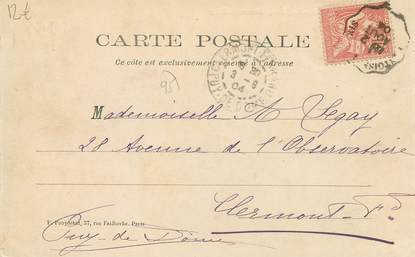 12€
CARTE POSTALE
Ce côté est exclusivement réservé à l'adresse
95
Mademoiselle A Segay
28 Avenue de l'Observatoire
Clermont-Fd
37, rue Faidherbe, Paris
Puy-de-Dôme